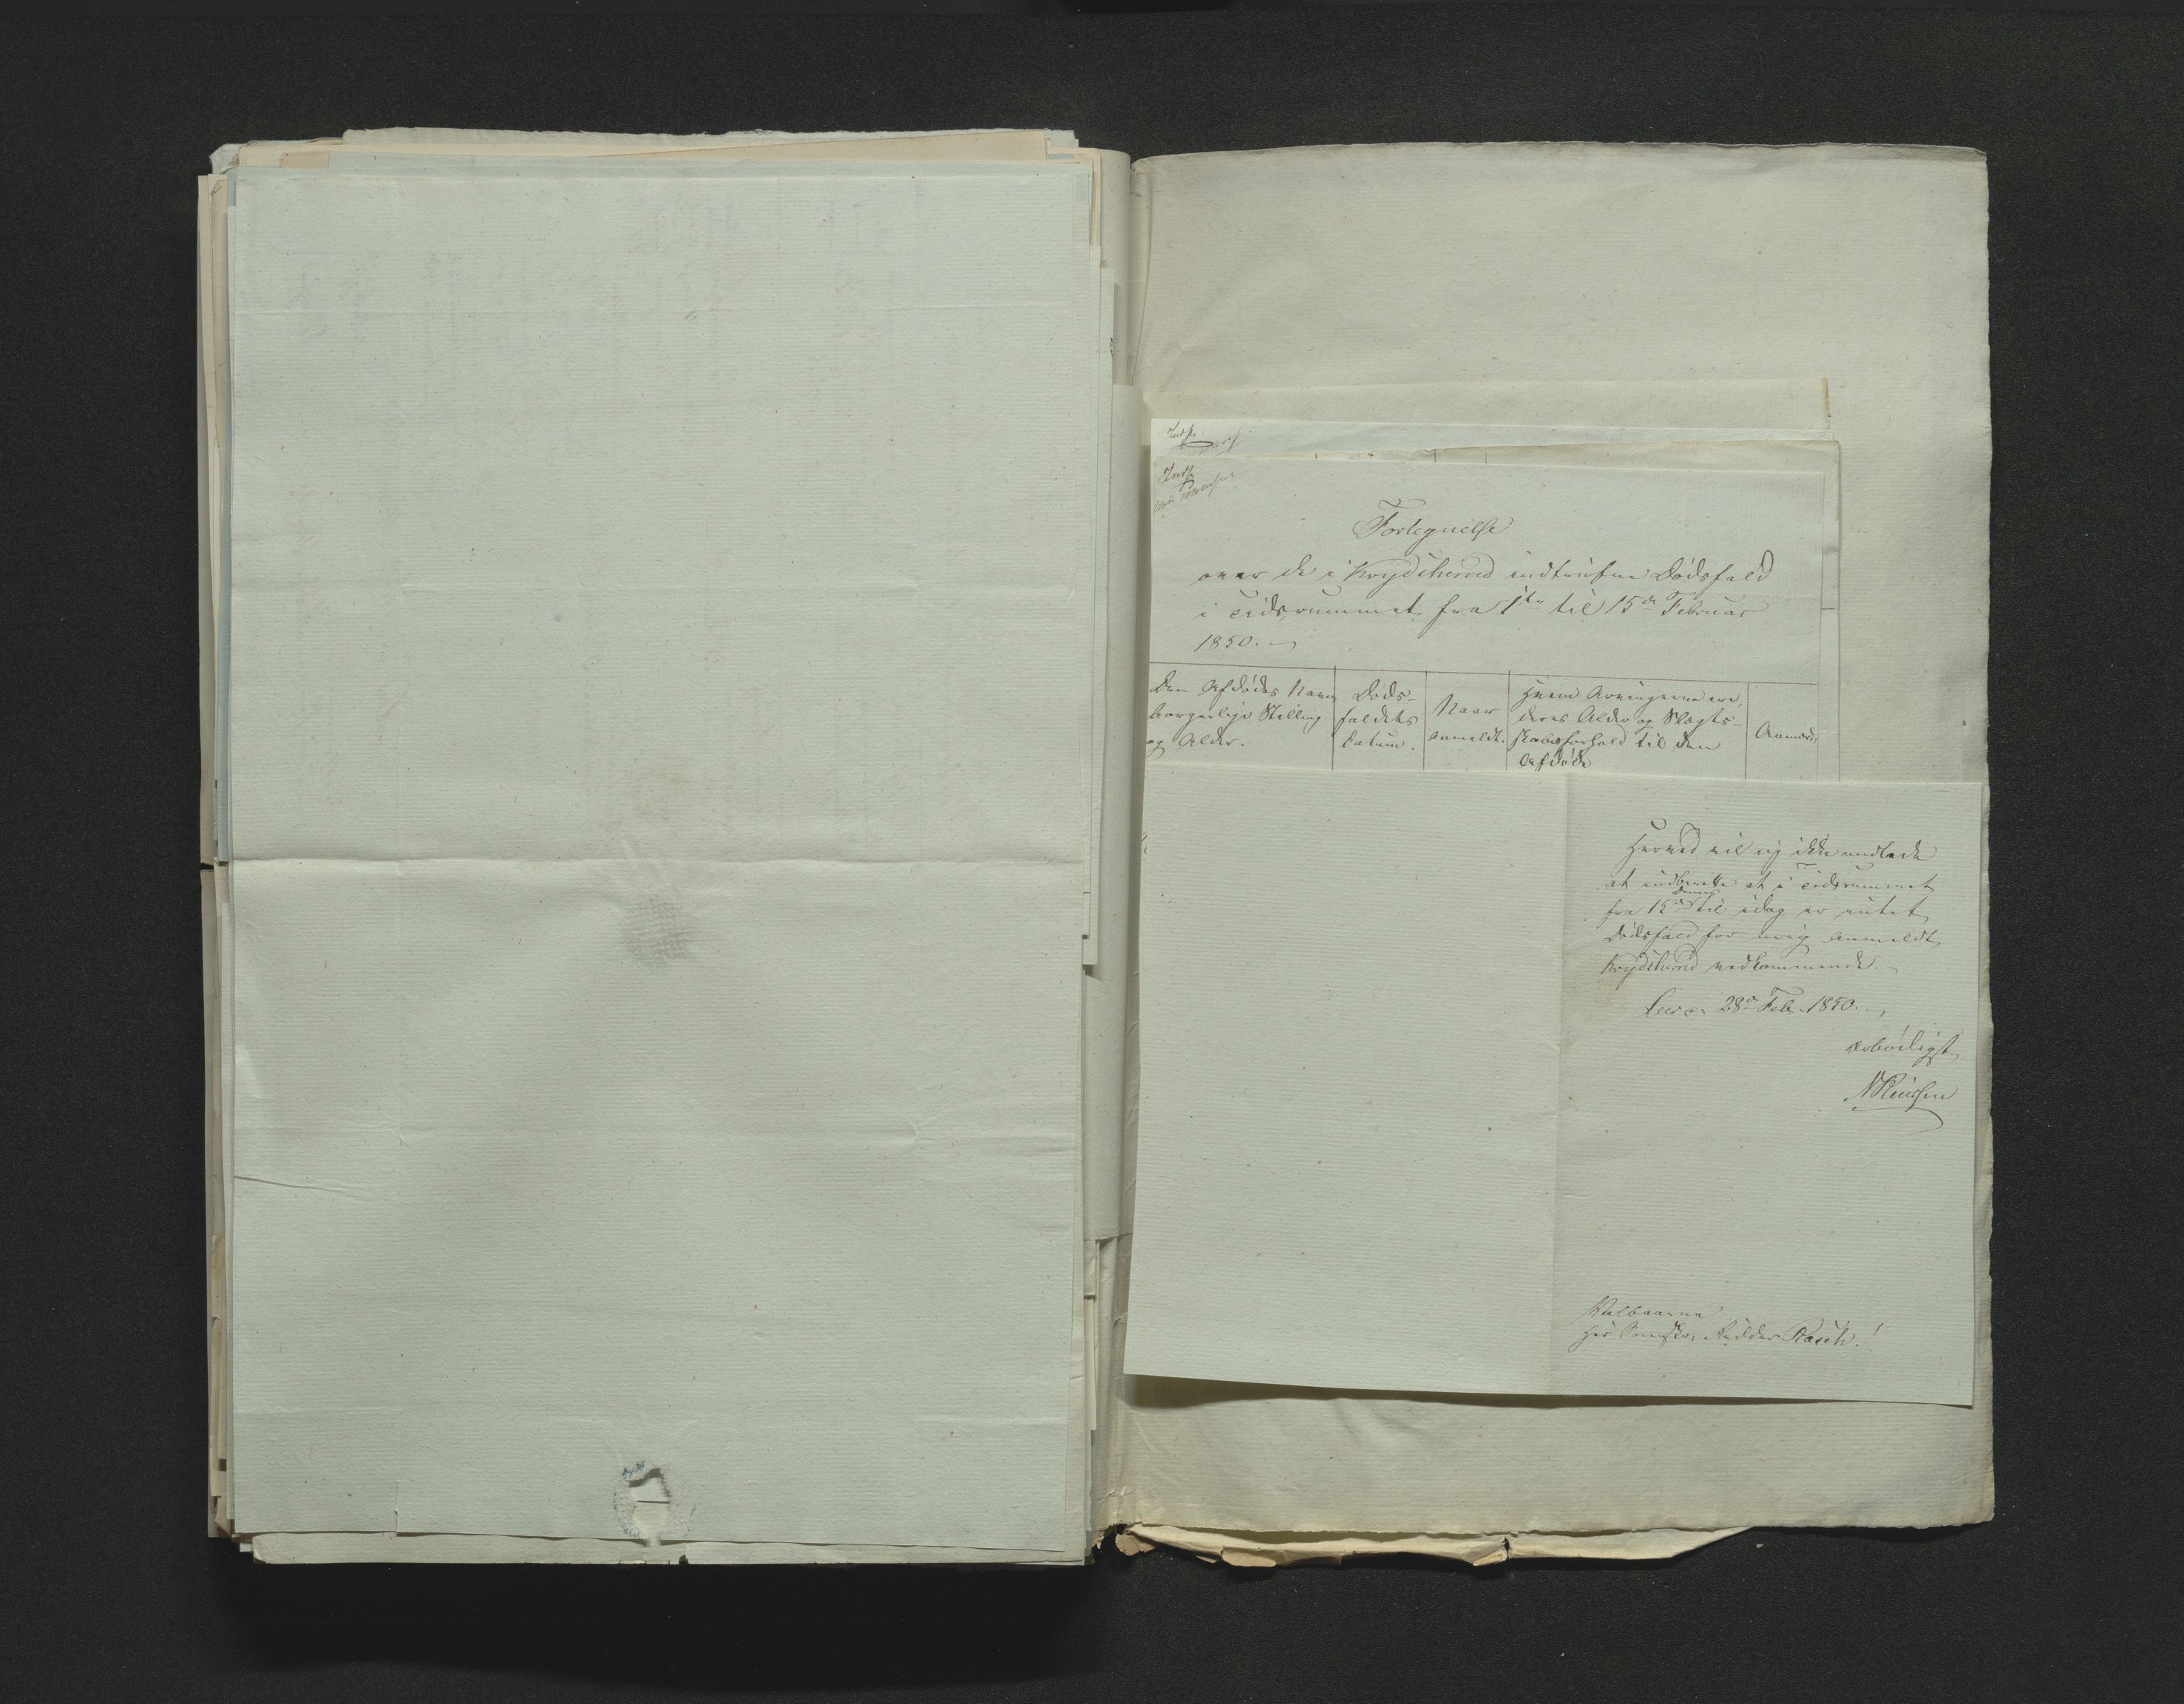 Indf
Fortegnelse
over de i Krydsherred indtrufne Dødsfald
i Tidsrummet fra 1ste til 15de Februar
1850.
Den Afdødes Navn, borgerlige Stilling og Alder.
Dødsfaldets Datum.
Naar anmeldt.
Hvem Arvingerne ere, deres Alder og Slægtskabsforhold til den Afdøde
Anmærk.
Herved vil jeg ikke undlade
at indberette at i Tidsrummet
fra 15de dennes til idag er intet
Dødsfald for mig anmeldt
Krydsherred vedkommende.
28de Feb. 1850.
ærbødigst
Velbaarne
Hr. Sorenskr. Ridder Rasch!